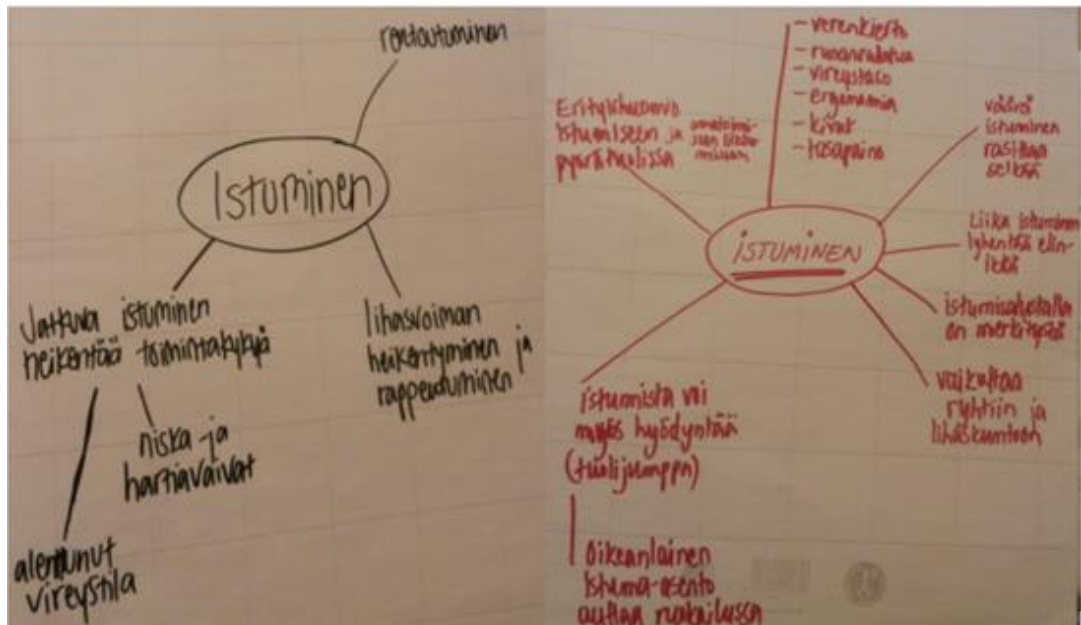 rentoutuminen
Istuminen
Jatkuva istuminen
heikentää toimintakykyä
niska- ja
hartiavaivat
alentunut
vireystila
lihasvoiman
heikentyminen ja
rappeutuminen
- verenkierto
- ruuansulatus
- vireystaso
- ergonomia
- kivut
- tasapaino
Erityishuomio
istumiseen ja
pyörätuolissa
väärä
istuminen
rasittaa
selkää
ISTUMINEN
Liika istuminen
lyhentää elin-
ikää
istumisalustalla
on merkitystä
vaikuttaa
ryhtiin ja
lihaskuntoon
istumista voi
myös hyödyntää
(tuolijumppa)
Oikeanlainen
istuma-asento
auttaa ruokailussa